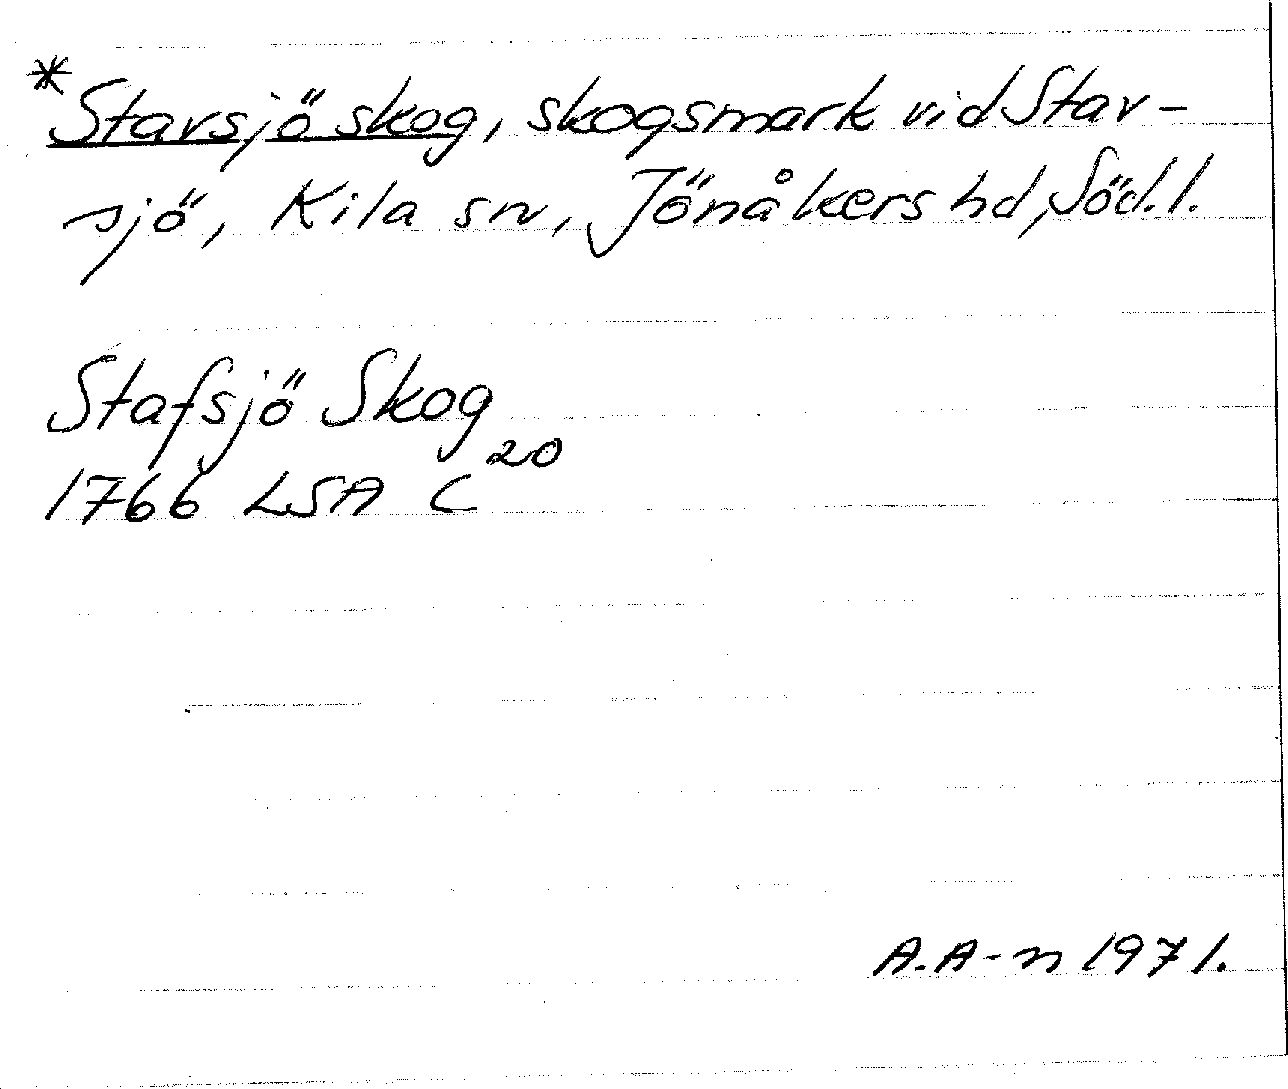 *Stavsjö skog, skogsmark vid Stav-
sjö, Kila sn, Jönåkers hd, Söd.l.
Stafsjö Skog
1766 LSA C 20
A.A-n 1971.